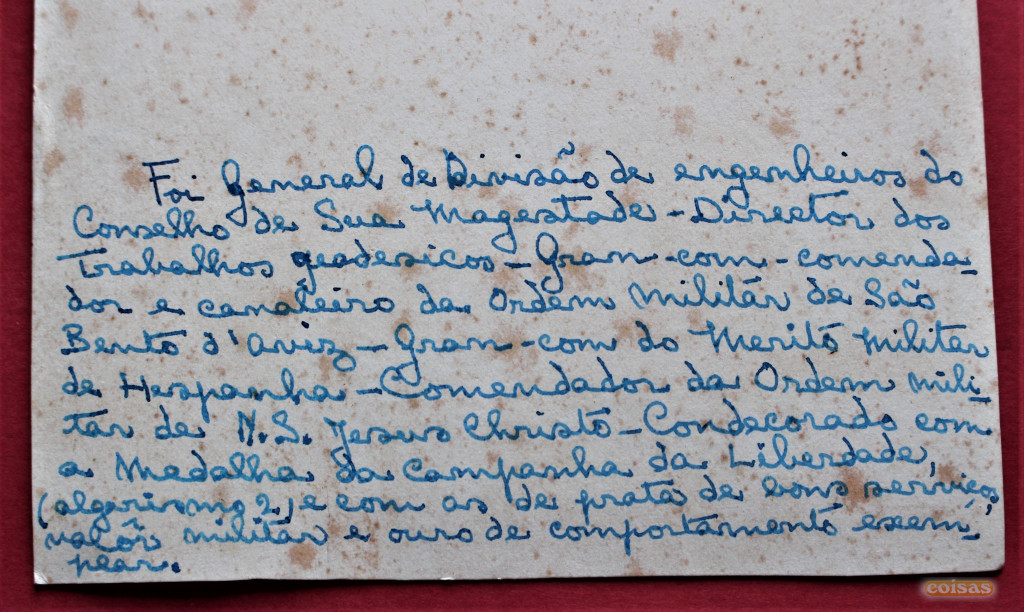 Foi General de Divisão de engenheiros do
Conselho de Sua Magestade - Director dos
Trabalhos geodesicos - Gran-com-comenda-
dor e cavaleiro da Ordem militár de São
Bento d'Aviz - Gran-com do Merito Militar
de Hespanha - Comendador da Ordem mili-
tar de N. S. Jesus Christo - Condecorado com
a Medalha da Campanha da Liberdade,
(algarismo 2.) e com as de prata de bons serviços,
valôr militár e ouro de comportamento exem-
plar.
coisas